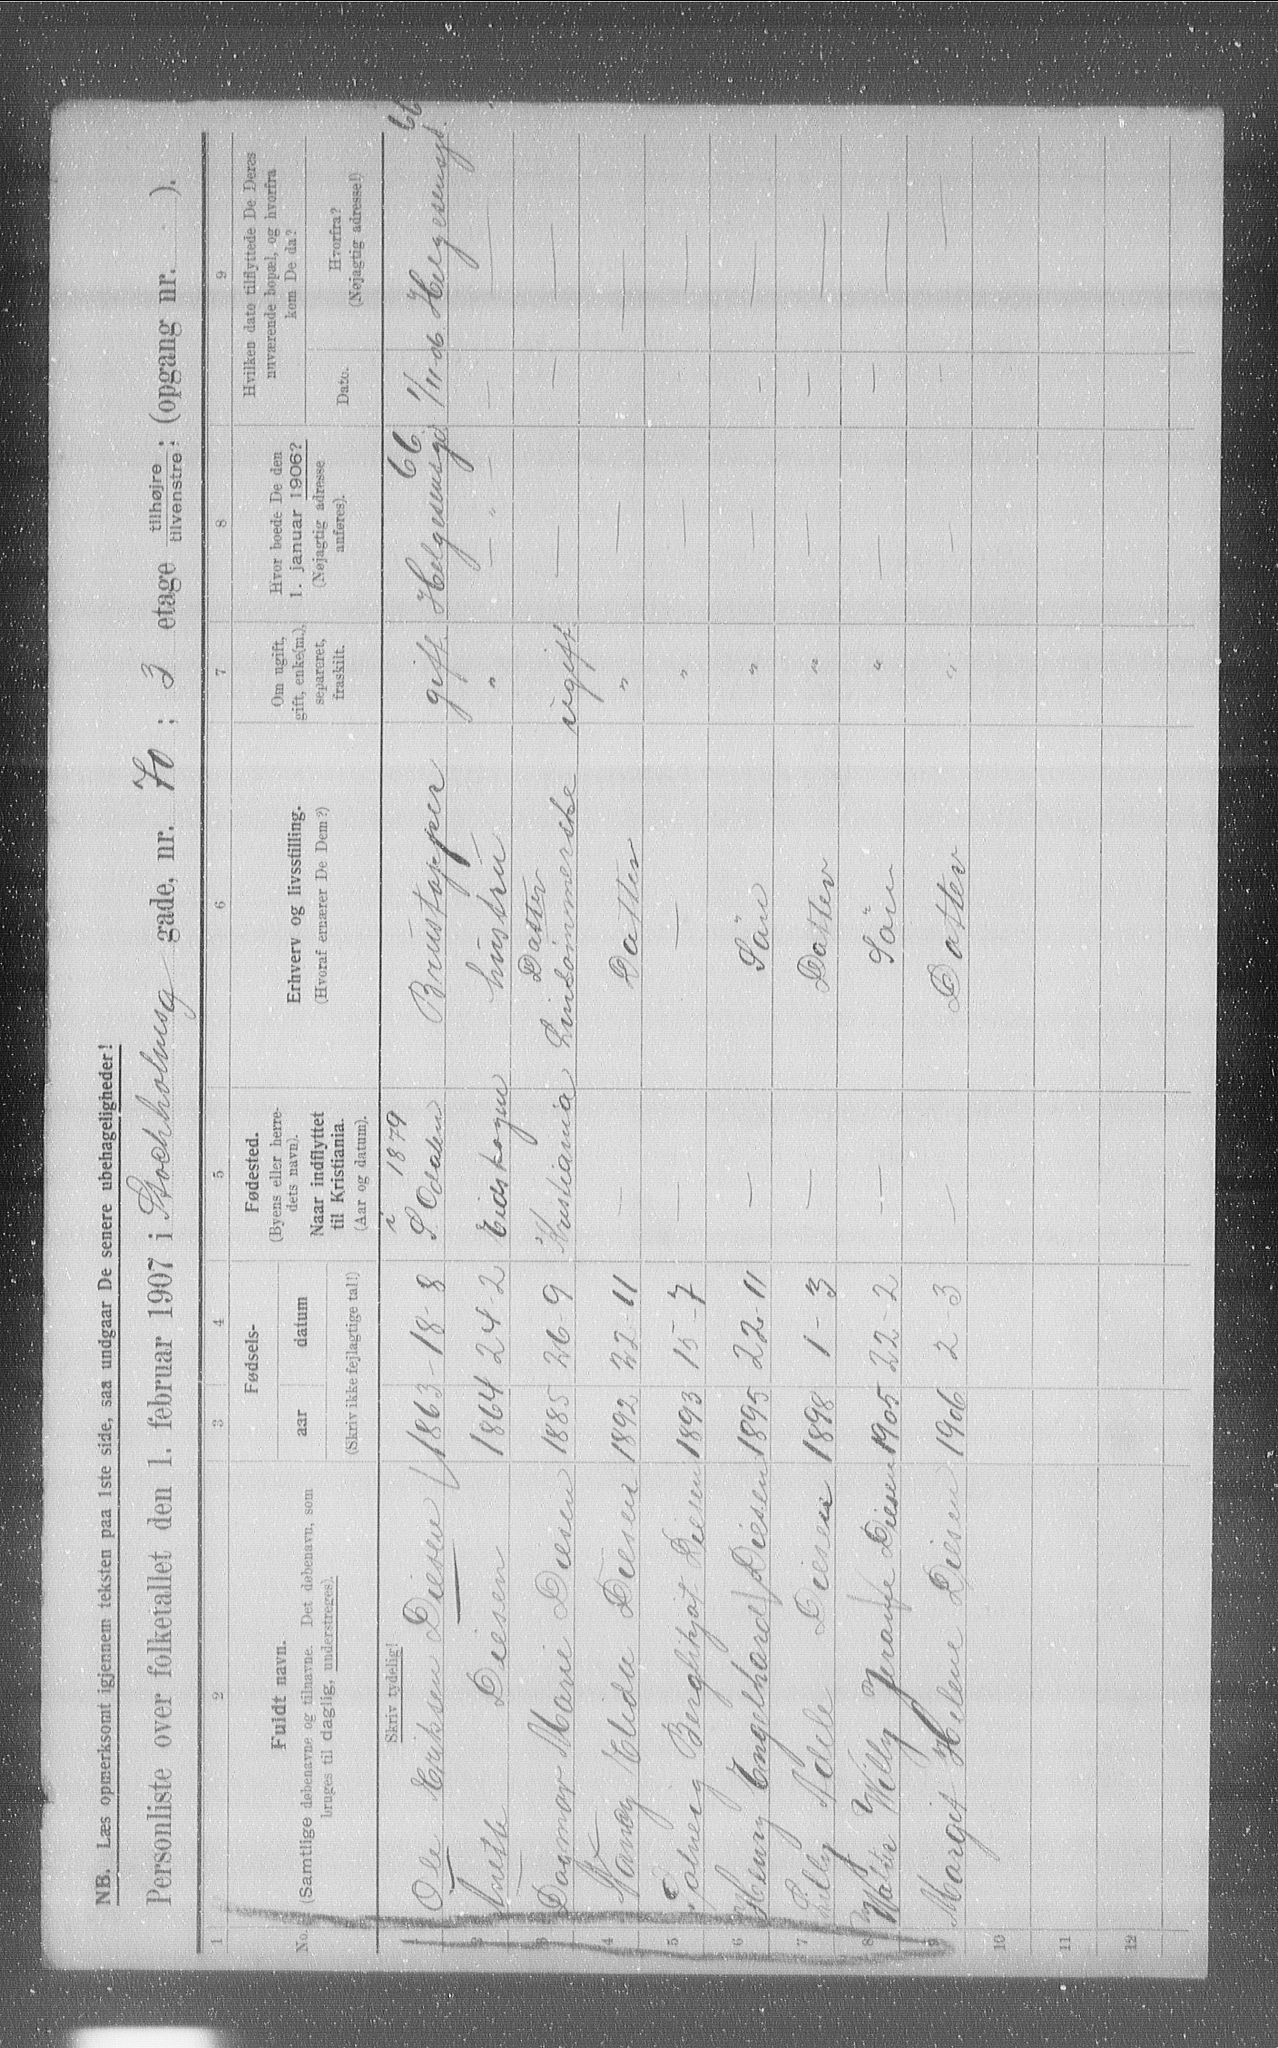 NB. Læs opmerksomt igjennem teksten paa 1ste side, saa undgaar De senere ubehageligheder!
Personliste over folketallet den 1. februar 1907 i Stockholmsg gade, nr. 70 ; 3 etage tilhøjre tilvenstre ; (opgang nr. ).
1 2 3 4 5 6 7 8 9
No. Fuldt navn. (Samtlige døbenavne og tilnavne. Det døbenavn, som bruges til daglig, understreges). Fødsels- aar datum (Skriv ikke fejlagtige tal!) Fødested. (Byens eller herredets navn). Naar indflyttet til Kristiania. (Aar og datum). Erhverv og livsstilling. (Hvoraf ernærer De Dem?) Om ugift, gift, enke(m.), separeret, fraskilt. Hvor boede De den 1. januar 1906? (Nøjagtig adresse anføres). Hvilken dato tilflyttede De Deres nuværende bopæl, og hvorfra kom De da? Dato. Hvorfra? (Nøjagtig adresse!)
Skriv tydelig!
1879 66. 66
Ole Eriksen Diesen 1863 - 18 - 8 S. Odalen Brustapper gift Helgesensgd 1/11 06 Helgesensgd.
2 Anette Diesen 1864 24 - 2 Eidskogne hustru " — " — — —
Datter
3 Dagmar Marie Diesen 1885 26 - 9 Kristiania Linsømmerske ugift — — —
4 Nanny Elida Diesen 1892 22 - 11 — Datter " — —
5 Solveig Bergljot Diesen 1893 15 - 7 — — " — —
6 Henry Engelhard Diesen 1895 22 - 11 — Sön " — — —
7 Lilly Adele Diesen 1898 1 - 3 — Datter " — — —
8 Willy Diesen 1905 22 - 2 — Sön " — — —
9 Margit Helene Diesen 1906 2 - 3 — Datter " — — —
10
11
12